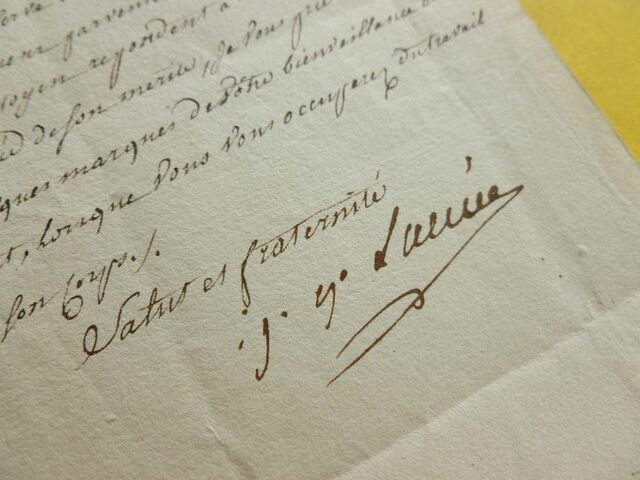 toyen repondent à
de son merite, je vous prie
ques marques de votre bienveillance
t, lorsque vous vous occuperez du travail
son corps ./.
Salut et fraternité